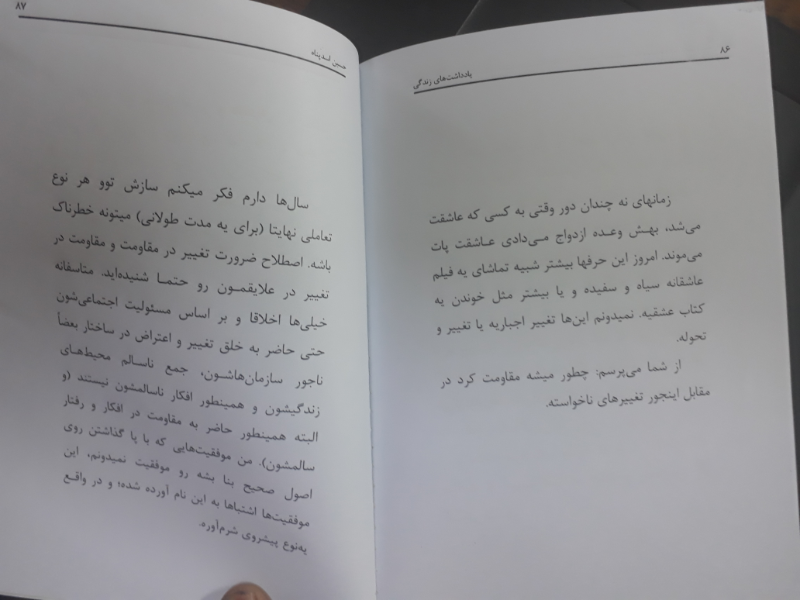 ۸۶
یادداشت‌های زندگی
زمانهای نه چندان دور وقتی به کسی که عاشقت
می‌شد، بهش وعده ازدواج می‌دادی عاشقت پات
می‌موند. امروز این حرفها بیشتر شبیه تماشای یه فیلم
عاشقانه سیاه و سفیده و یا بیشتر مثل خوندن یه
کتاب عشقیه. نمیدونم این‌ها تغییر اجباریه یا تغییر و
تحوله.
از شما می‌پرسم: چطور میشه مقاومت کرد در
مقابل اینجور تغییرهای ناخواسته.
۸۷
حسین اسدپناه
سال‌ها دارم فکر میکنم سازش توو هر نوع
تعاملی نهایتا (برای یه مدت طولانی) میتونه خطرناک
باشه. اصطلاح ضرورت تغییر در مقاومت و مقاومت در
تغییر در علایقمون رو حتما شنیده‌اید. متاسفانه
خیلی‌ها اخلاقا و بر اساس مسئولیت اجتماعی‌شون
حتی حاضر به خلق تغییر و اعتراض در ساختار بعضاً
ناجور سازمان‌هاشون، جمع ناسالم محیط‌های
زندگیشون و همینطور افکار ناسالمشون نیستند (و
البته همینطور حاضر به مقاومت در افکار و رفتار
سالمشون). من موفقیت‌هایی که با پا گذاشتن روی
اصول صحیح بنا بشه رو موفقیت نمیدونم، این
موفقیت‌ها اشتباها به این نام آورده شده؛ و در واقع
یه‌نوع پیشروی شرم‌آوره.